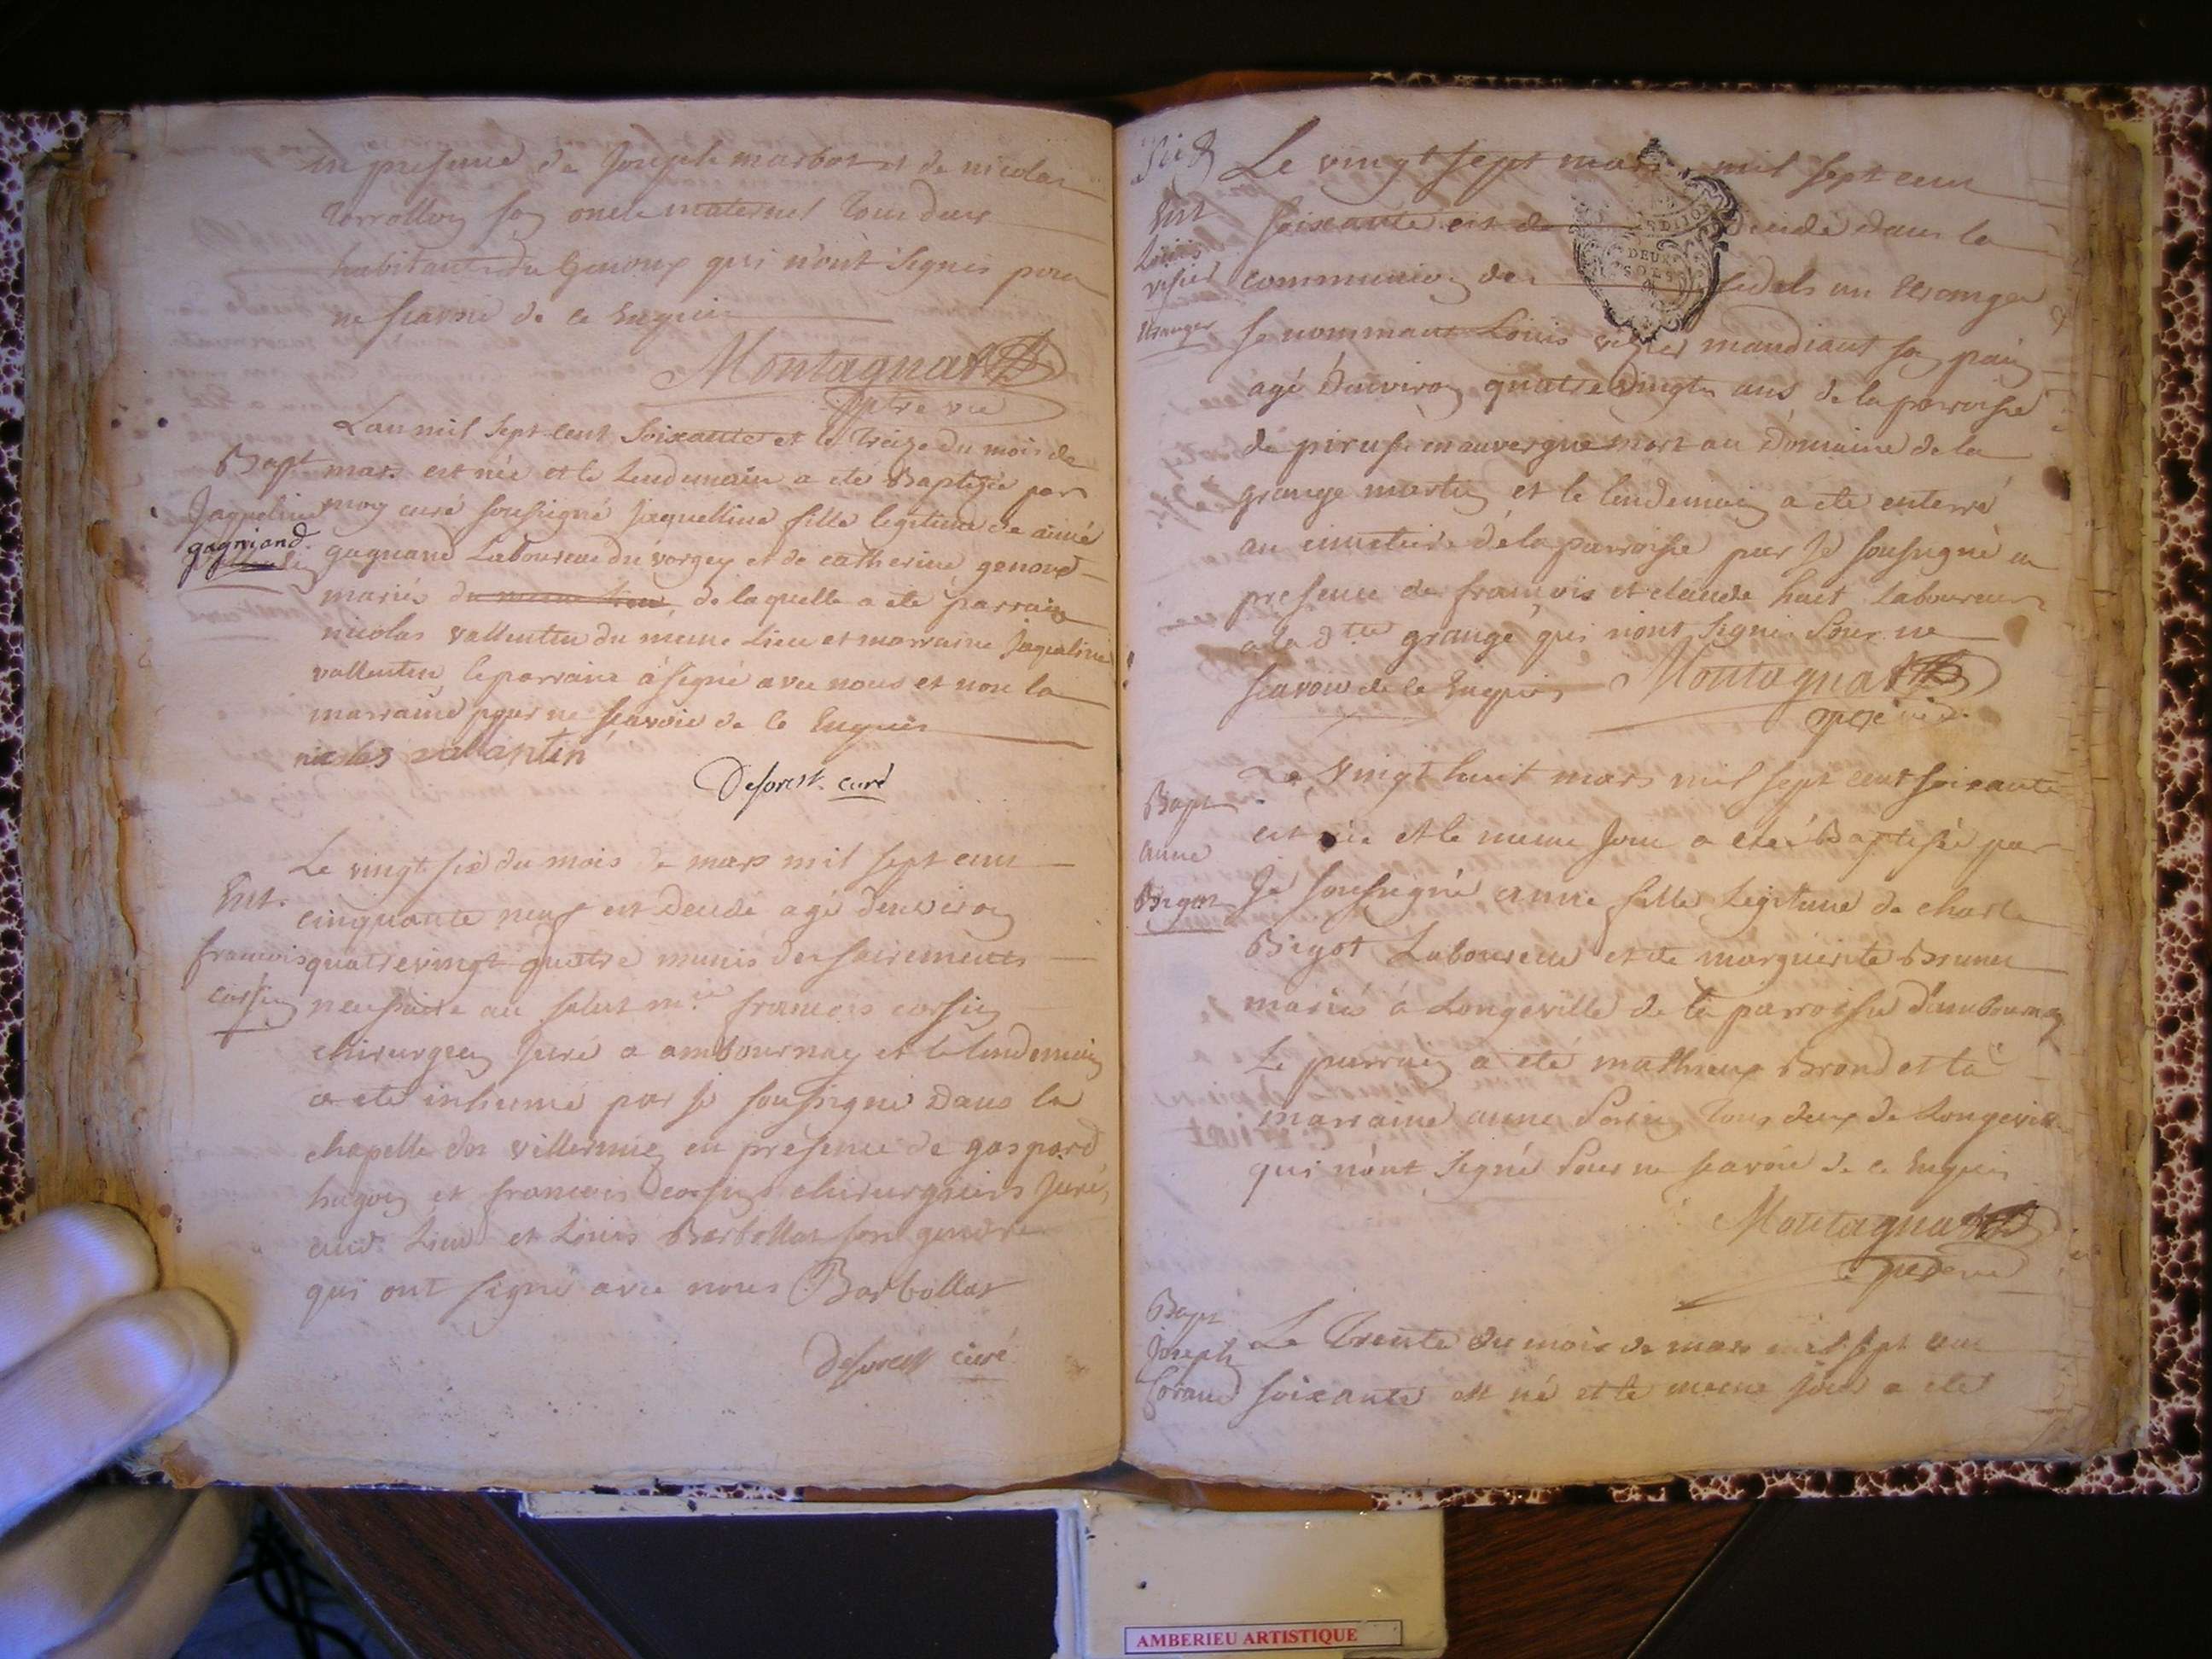 en presence de Joseph marbot et de nicolas
son oncle maternel tous deux
habitants du Genoux qui n'ont signés pour
ne scavoir de ce Enquis
Montagnat
ptre vic
L'an mil sept cent soixante et le treize du mois de
Bapt
mars est née et le lendemain a eté Baptizée par
Jaqueline
moy curé soussigné jaquelline fille legitime de aimé
gagniand
gagnand Laboureur du vorgey et de catherine genoud
mariés du meme lieu, de laquelle a eté parrain
nicolas vallentin du meme Lieu et marraine Jaqueline
vallentin le parrain a signé avec nous et non la
marraine pour ne scavoir de ce Enquis
nicolas valantin
Deforest curé
Le vingt six du mois de mars mil sept cent
Ent.
cinquante neuf est decedé agé denviron
francois
quatrevingt quatre munis des sacrements
corsin
necessaire au salut m.re francois corsin
chirurgien juré a ambournay et le lendemain
a eté inhumé par je soussigné Dans la
chapelle des villermin en présence de gaspard
hugon et francois corsin chirurgiens jurés
aud. Lieu et Louis Barbollat son gendre
qui ont signé avec nous Barbollat
Deforest curé
Le vingt sept mars mil sept cent
Ent
soixante est decedé dans la
Louis
communion des fidels un Etranger
Etranger
se nommant Louis mandiant son pain
agé d'environ quatre vingts ans de la parroisse
de piruse en auvergne mort au Domaine de la
grange martin et le lendemain a eté enterré
au cimetiere de la parroisse par je soussigné en
presence de francois et claude huit laboureurs
a la d.tte grange qui n'ont signés Pour ne
scavoir de ce Enquis Montagnat
ptre vic
DEUX
SOLS
Le Vingt huit mars mil sept cent soixante
Bapt
est née et le meme Jour a eté Baptisée par
anne
Bigot
Je soussigné anne fille Legitime de charle
Bigot Laboureur et de marguerite Brunet
mariés à Longeville de la parroisse d'ambournay
Le parrain a eté mathieux Brond et la
marraine anne Perrin tous deux de Longeville
qui n'ont signé Pour ne scavoir de ce Enquis
Montagnat
ptre vic
Bapt
Joseph
Le Trente du mois de mars mil sept cent
Corand
soixante est né et le meme jour a eté
AMBERIEU ARTISTIQUE